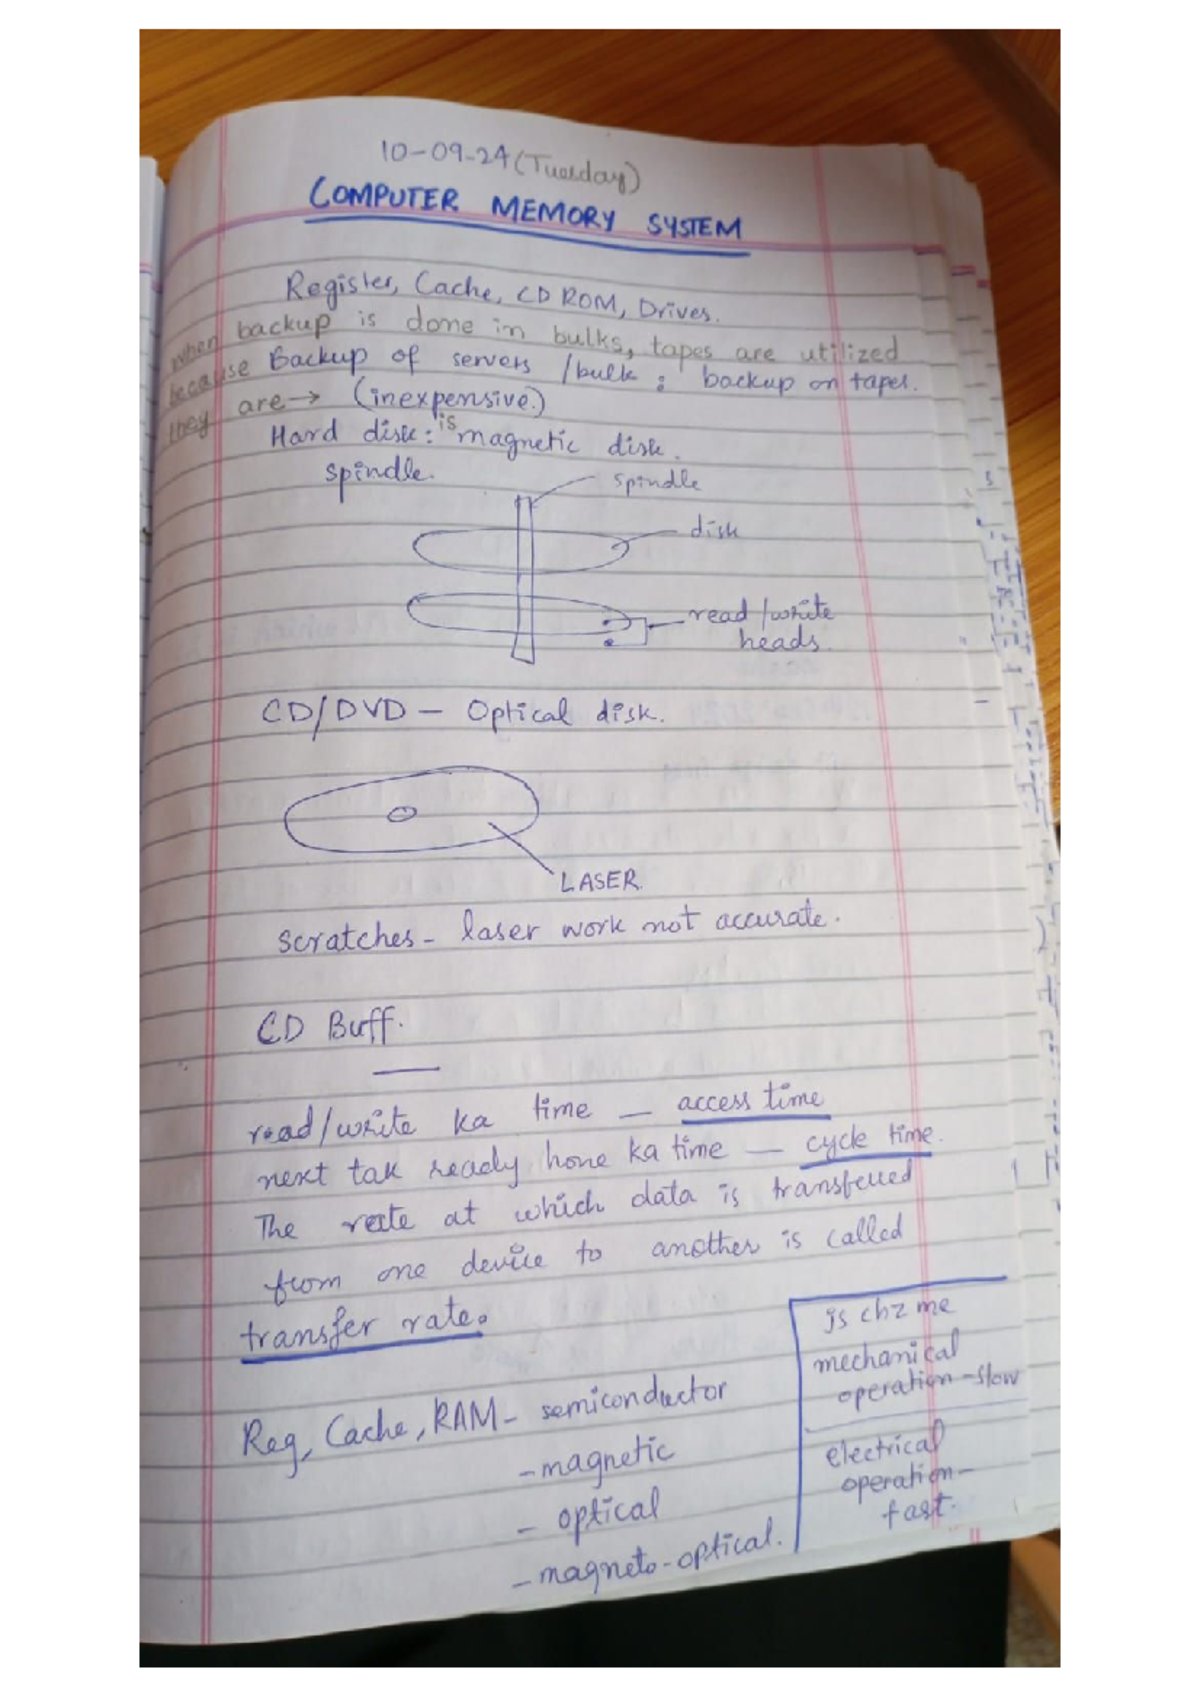 10-09-24 (Tuesday)
COMPUTER MEMORY SYSTEM
Register, Cache, CD ROM, Drives.
when backup is done in bulks, tapes are utilized
because Backup of servers /bulk : backup on tapes.
they are → (inexpensive.)
Hard disk: is magnetic disk.
spindle.
spindle
disk
read/write
heads.
CD/DVD - Optical disk.
LASER.
scratches - laser work not accurate.
CD Buff.
read/write ka time - access time
next tak ready hone ka time - cycle time.
The rate at which data is transferred
from one device to another is called
transfer rate.
Reg, Cache, RAM - semiconductor
- magnetic
- optical
- magneto-optical.
js chz me
mechanical
operation - slow
electrical
operation -
fast.